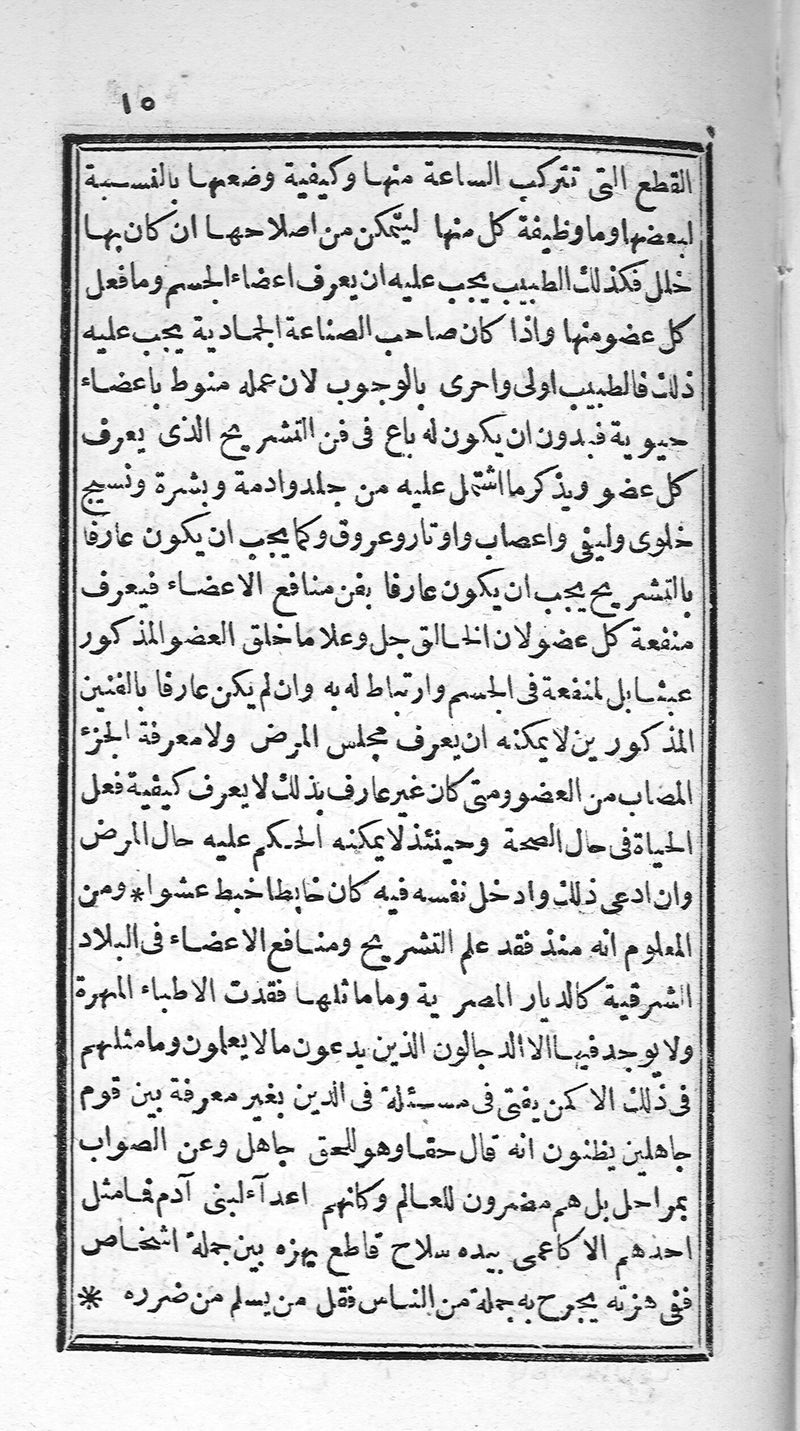 ١٥
القطع التى تتركب الساعة منها وكيفية وضعها بالنسبة
لبعضها وما وظيفة كل منها ليتمكن من اصلاحها ان كان بها
خلل فكذلك الطبيب يجب عليه ان يعرف اعضاء الجسم وما فعل
كل عضو منها واذا كان صاحب الصناعة الجمادية يجب عليه
ذلك فالطبيب اولى واحرى بالوجوب لان عمله منوط باعضاء
حيوية فبدون ان يكون له باع فى فن التشريح الذى يعرف
كل عضو ويذكر ما اشتمل عليه من جلد وادمة وبشرة ونسيج
خلوى وليفى واعصاب واوتار وعروق وكما يجب ان يكون عارفا
بالتشريح يجب ان يكون عارفا بفن منافع الاعضاء فيعرف
منفعة كل عضو لان الخالق جل وعلا ما خلق العضو المذكور
عبثا بل لمنفعة فى الجسم وارتباط له به وان لم يكن عارفا بالفنين
المذكورين لا يمكنه ان يعرف مجلس المرض ولا معرفة الجزء
المصاب من العضو ومتى كان غير عارف بذلك لا يعرف كيفية فعل
الحياة فى حال الصحة وحينئذ لا يمكنه الحكم عليه حال المرض
وان ادعى ذلك وادخل نفسه فيه كان خابطا خبط عشوا * ومن
المعلوم انه منذ فقد علم التشريح ومنافع الاعضاء فى البلاد
الشرقية كالديار المصرية وما ماثلها فقدت الاطباء المهرة
ولا يوجد فيها الا الدجالون الذين يدعون ما لا يعلمون وما مثلهم
فى ذلك الا كمن يفتى فى مسئلة فى الدين بغير معرفة بين قوم
جاهلين يظنون انه قال حقا وهو للحق جاهل وعن الصواب
بمراحل بل هم مضرون للعالم وكانهم اعدآء لبنى آدم فما مثل
احدهم الا كاعمى بيده سلاح قاطع يهزه بين جملة اشخاص
ففى هزته يجرح به جملة من الناس فقل من يسلم من ضرره *